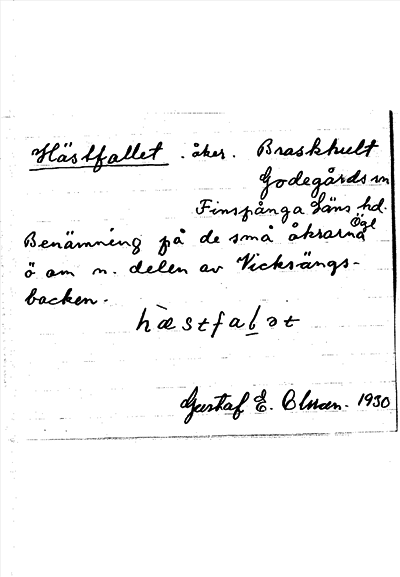 Hästfallet. åker. Braskhult
Godegårds sn
Finspånga Läns hd.
Ögl
Benämning på de små åkrarna
ö om n. delen av Vicksängs-
backen.
hæstfaḷət
Gustaf E. Olsson. 1930